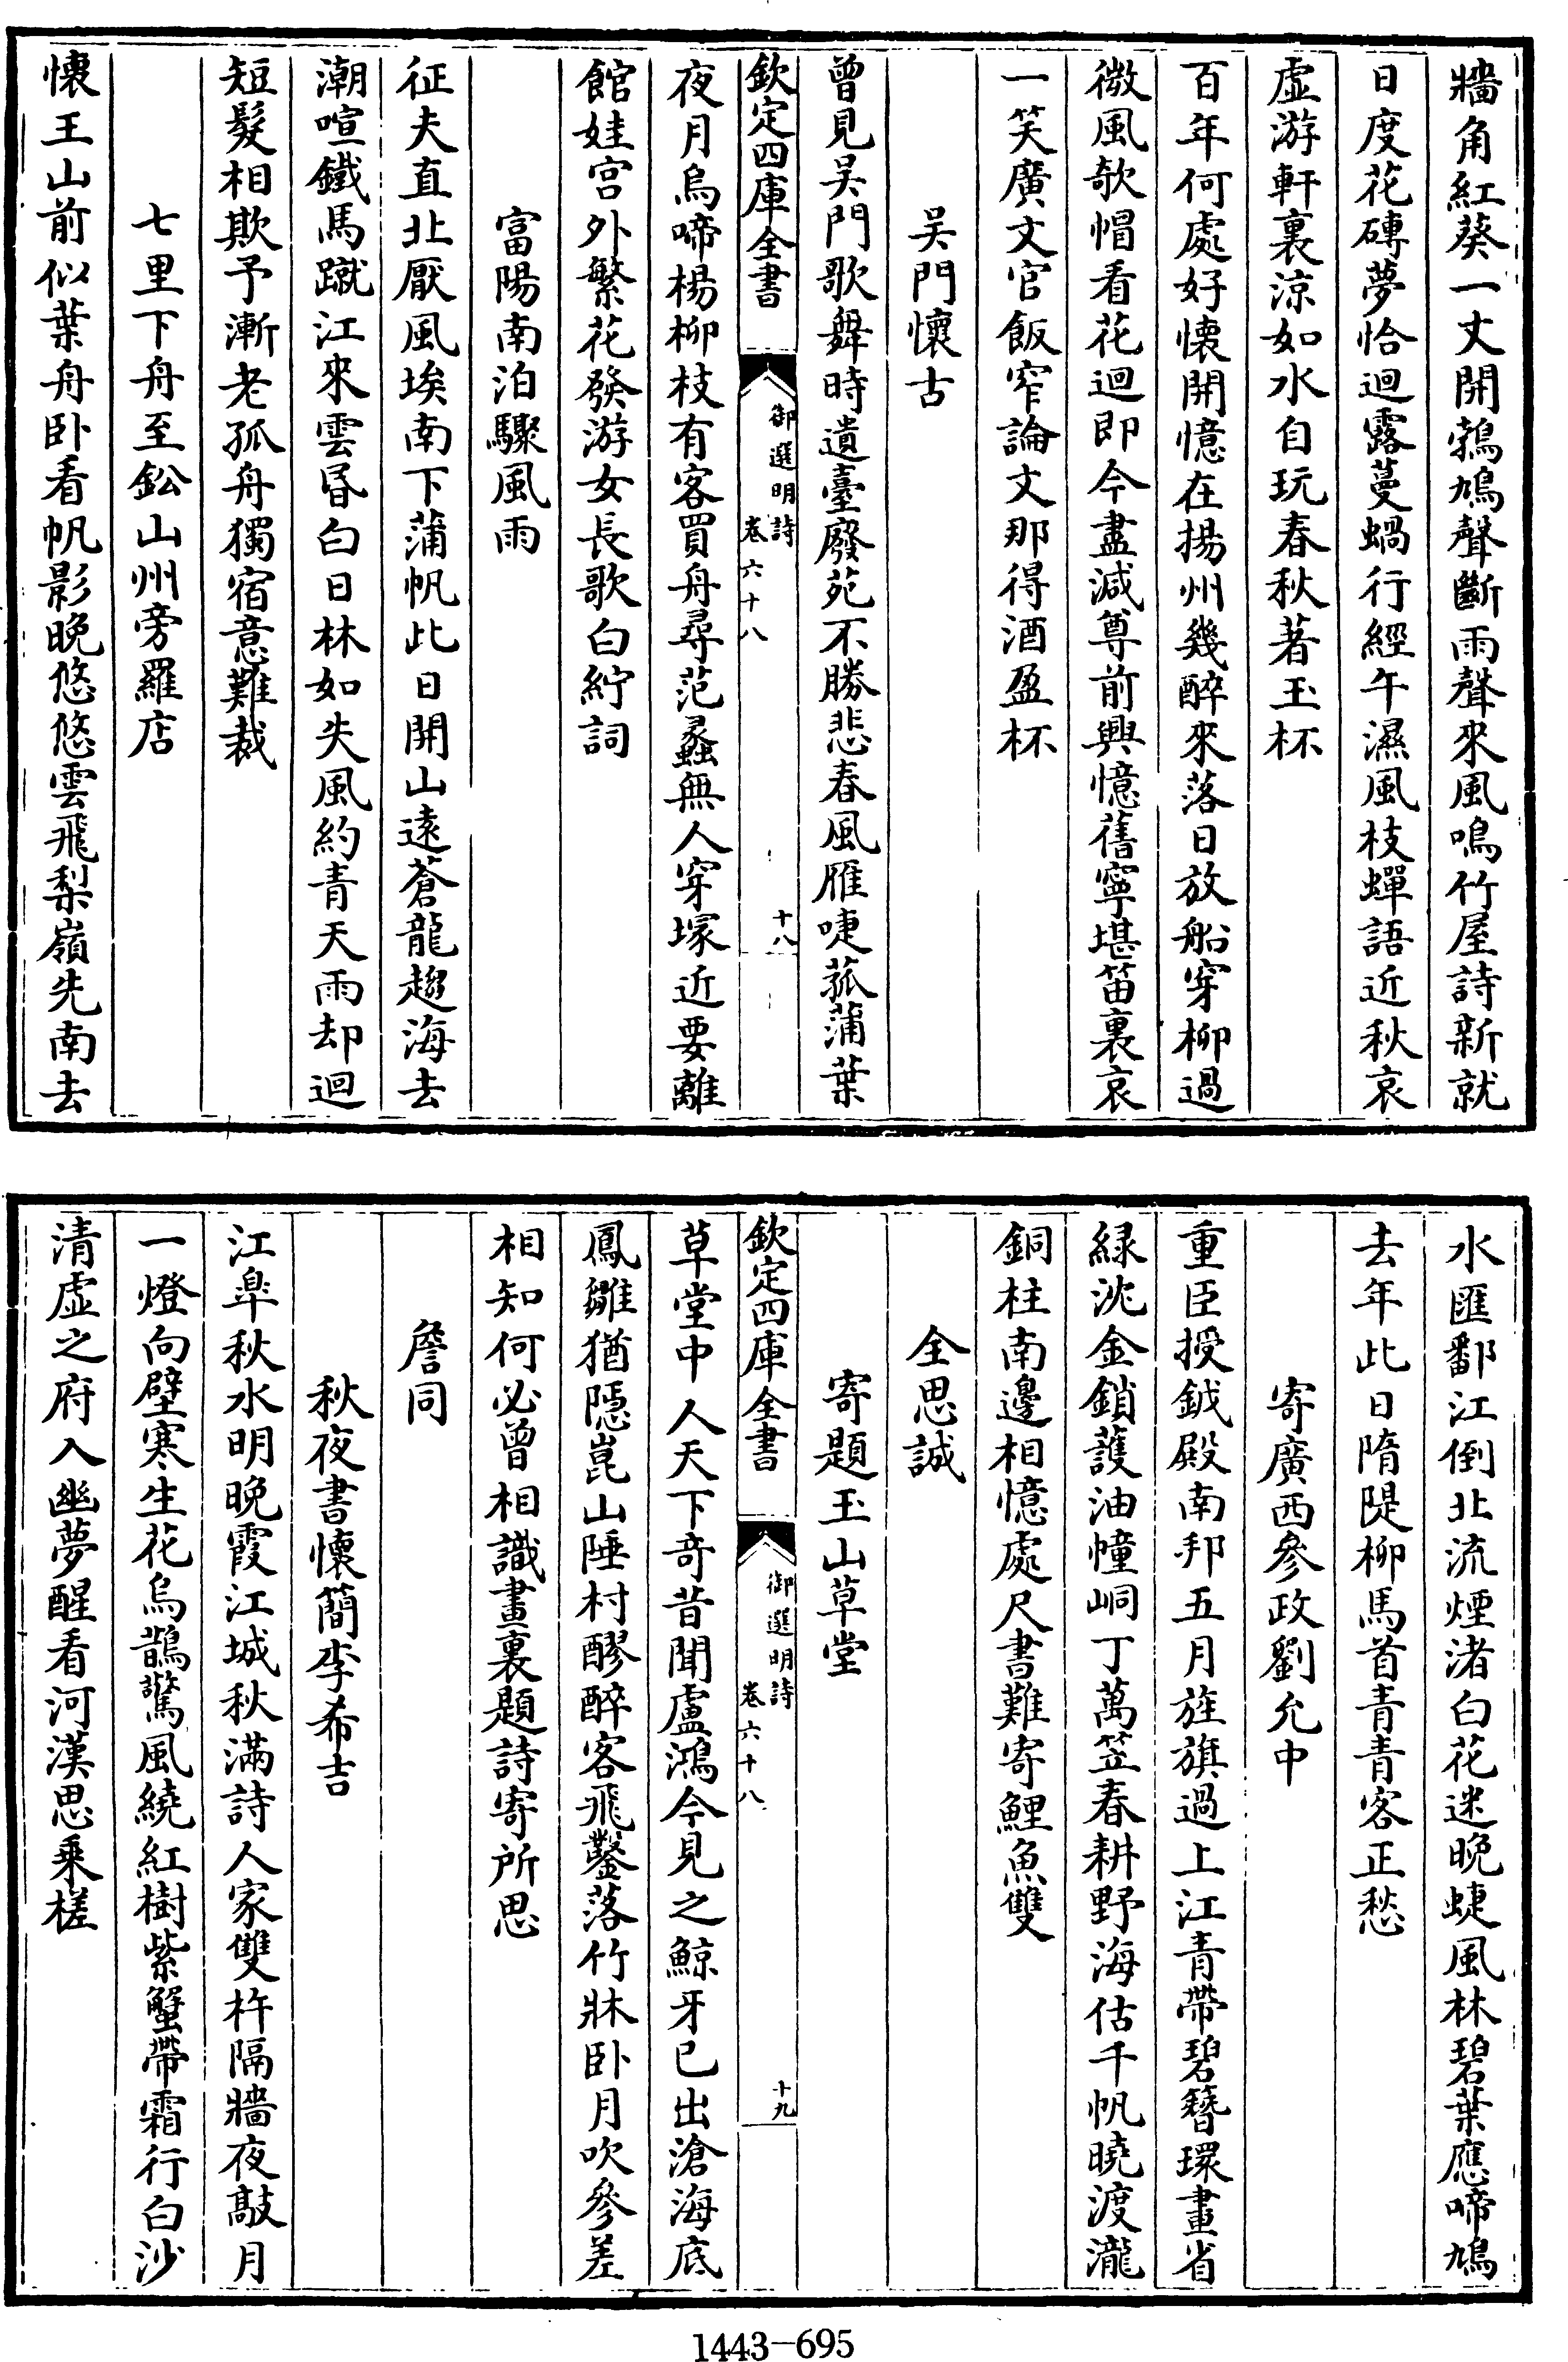 牆角紅葵一丈開鵓鳩聲斷雨聲來風鳴竹屋詩新就
日度花磚夢恰迴露蔓蝸行經午濕風枝蟬語近秋哀
虛游軒裏涼如水自玩春秋著玉杯
百年何處好懷開憶在揚州幾醉來落日放船穿柳過
微風欹帽看花迴即今盡減尊前興憶舊寧堪笛裏哀
一笑廣文官飯窄論文那得酒盈杯
吳門懷古
曾見吳門歌舞時遺臺廢苑不勝悲春風雁唼菰蒲葉
欽定四庫全書
御選明詩
卷六十八
十八
夜月烏啼楊柳枝有客買舟尋范蠡無人穿塚近要離
館娃宫外繁花發游女長歌白紵詞
富陽南泊驟風雨
征夫直北厭風埃南下蒲帆此日開山遠蒼龍趨海去
潮喧鐵馬蹴江來雲昬白日林如失風約青天雨却迴
短髮相欺予漸老孤舟獨宿意難裁
七里下舟至鈆山州旁羅店
懷王山前似葉舟卧看帆影晚悠悠雲飛梨嶺先南去
水匯鄱江倒北流煙渚白花迷晚蜨風林碧葉應啼鳩
去年此日隋隄柳馬首青青客正愁
寄廣西參政劉允中
重臣授鉞殿南邦五月旌旗過上江青帶碧簪環畫省
緑沈金鎖護油幢峒丁萬笠春耕野海估千帆曉渡瀧
銅柱南邊相憶處尺書難寄鯉魚雙
全思誠
寄題玉山草堂
欽定四庫全書
御選明詩
卷六十八
十九
草堂中人天下奇昔聞盧鴻今見之鯨牙已出滄海底
鳳雛猶隱崑山陲村醪醉客飛鑿落竹牀卧月吹參差
相知何必曾相識畫裏題詩寄所思
詹同
秋夜書懷簡李希吉
江臯秋水明晚霞江城秋滿詩人家雙杵隔牆夜敲月
一燈向壁寒生花烏鵲驚風繞紅樹紫蟹帶霜行白沙
清虛之府入幽夢醒看河漢思乘槎
1443-695